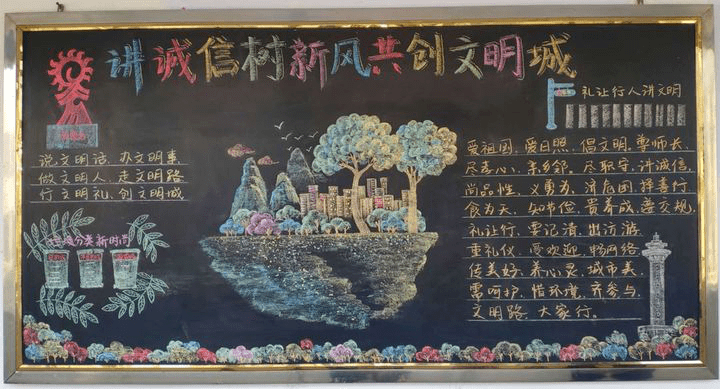 讲诚信树新风共创文明城
说文明话、办文明事
做文明人、走文明路
行文明礼、创文明城
垃圾分类新时尚
礼让行人讲文明
爱祖国、爱日照、倡文明、尊师长、
尽孝心、亲乡邻。尽职守、讲诚信、
尚品性、义勇为、济危困、择善行、
食为天、知节俭、贵养成、遵交规、
礼让行、要记清、出访游、
重礼仪、受欢迎、网络
传美好、养心灵、城市美、
需呵护、惜环境、齐参与、
文明路、大家行。